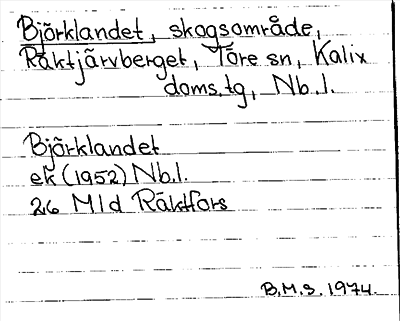 Björklandet, skogsområde,
Räktjärvberget, Töre sn, Kalix
doms.tg, Nb.l.
Björklandet
ek (1952) Nb.l.
26 Mld Räktfors
B.M.S. 1974.